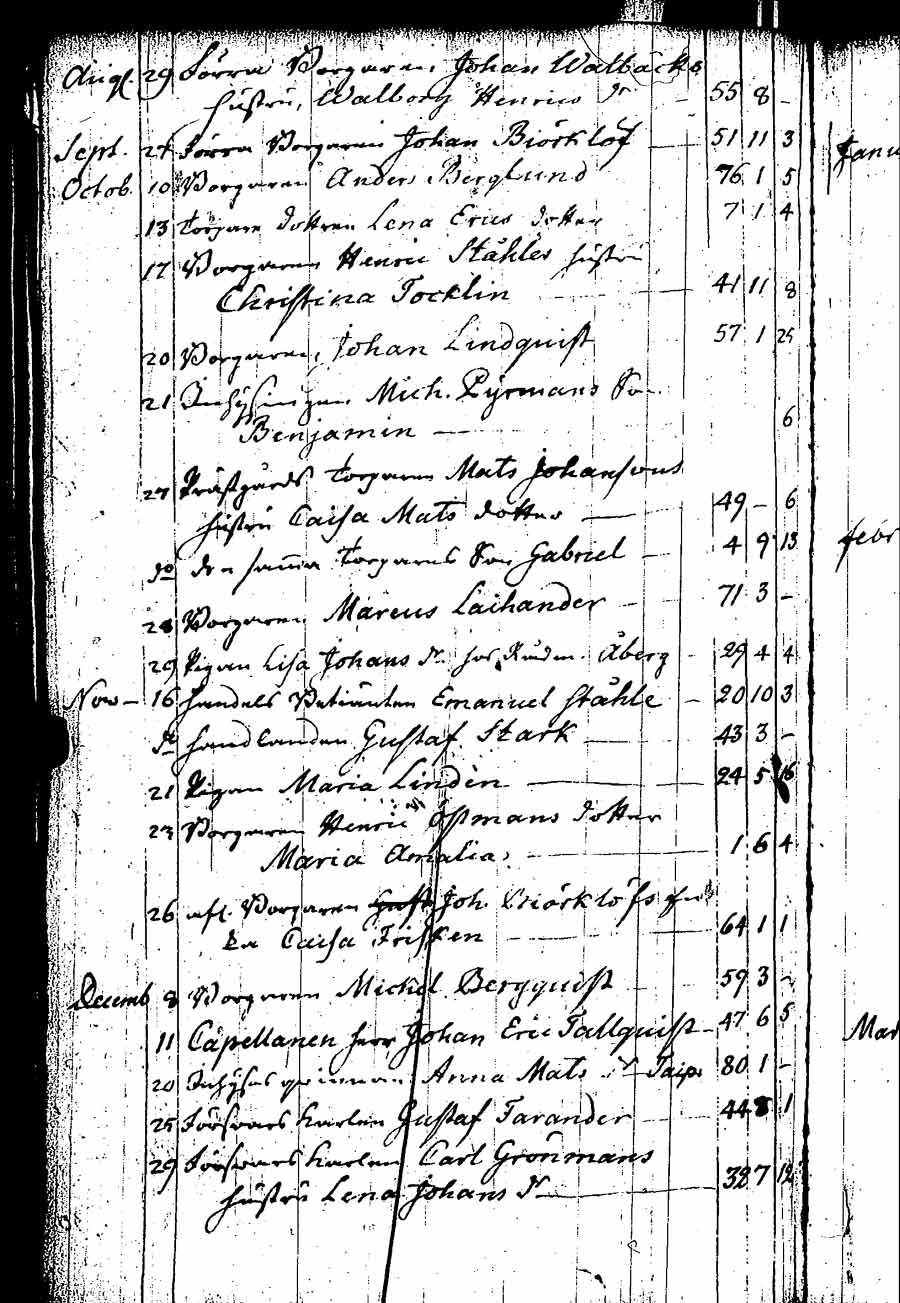 Aug. 29 Förra Borgaren Johan Walbäcks
hustru, Walborg Henrics dr 55 8 -
Sept. 24 Förra Borgaren Johan Biörklöf 51 11 3
Janu
Octob. 10 Borgaren Anders Berglund 76 1 5
13 Torpare dottren Lena Erics dotter 7 1 4
17 Borgaren Henric Ståhles hustru
Christina Tocklin 41 11 8
20 Borgaren, Johan Lindquist 57 1 25
21 Inhysingen Mich. Pyrmans Son
Benjamin 6
27 Prästgårds Torparen Mats Johansons
hustru Caisa Mats dotter 49 - 6
do den samma Torparens Son Gabriel 4 9 13
febr
28 Borgaren Marcus Laihander 71 3 -
29 Pigan Lisa Johans dr hos Åberg 29 4 4
Nov 16 handels Betiänten Emanuel Ståhle 20 10 3
do handlanden Gustaf Stark 43 3 -
21 Pigan Maria Lindén 24 5 16
23 Borgaren Henric Östmans dotter
Maria Amalia 1 6 4
26 afl. Borgaren Joh. Biörklöfs
Caisa Frisken 64 1 1
Decemb 8 Borgaren Michel Bergquist 59 3 -
11 Capellanen herr Johan Eric Tallquist 47 6 5
Mar
20 Inhyses qvinnan Anna Mats dr Taipo 80 1 -
25 Försvars karlen Gustaf Tarander 44 8 1
29 Försvars karlen Carl Grönmans
hustru Lena Johans dr 38 7 12